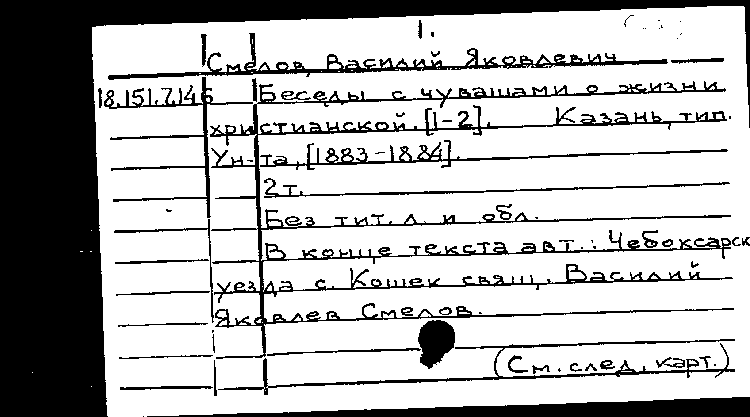 1.
Смелов, Василий Яковлевич
18.151.7.146 Беседы с чувашами о жизни
христианской. [1-2]. Казань, тип.
Ун-та, [1883-1884].
2т.
Без тит. л. и обл.
В конце текста авт.: Чебоксарск
уезда с. Кошек свящ. Василий
Яковлев Смелов.
(См. след. карт.)